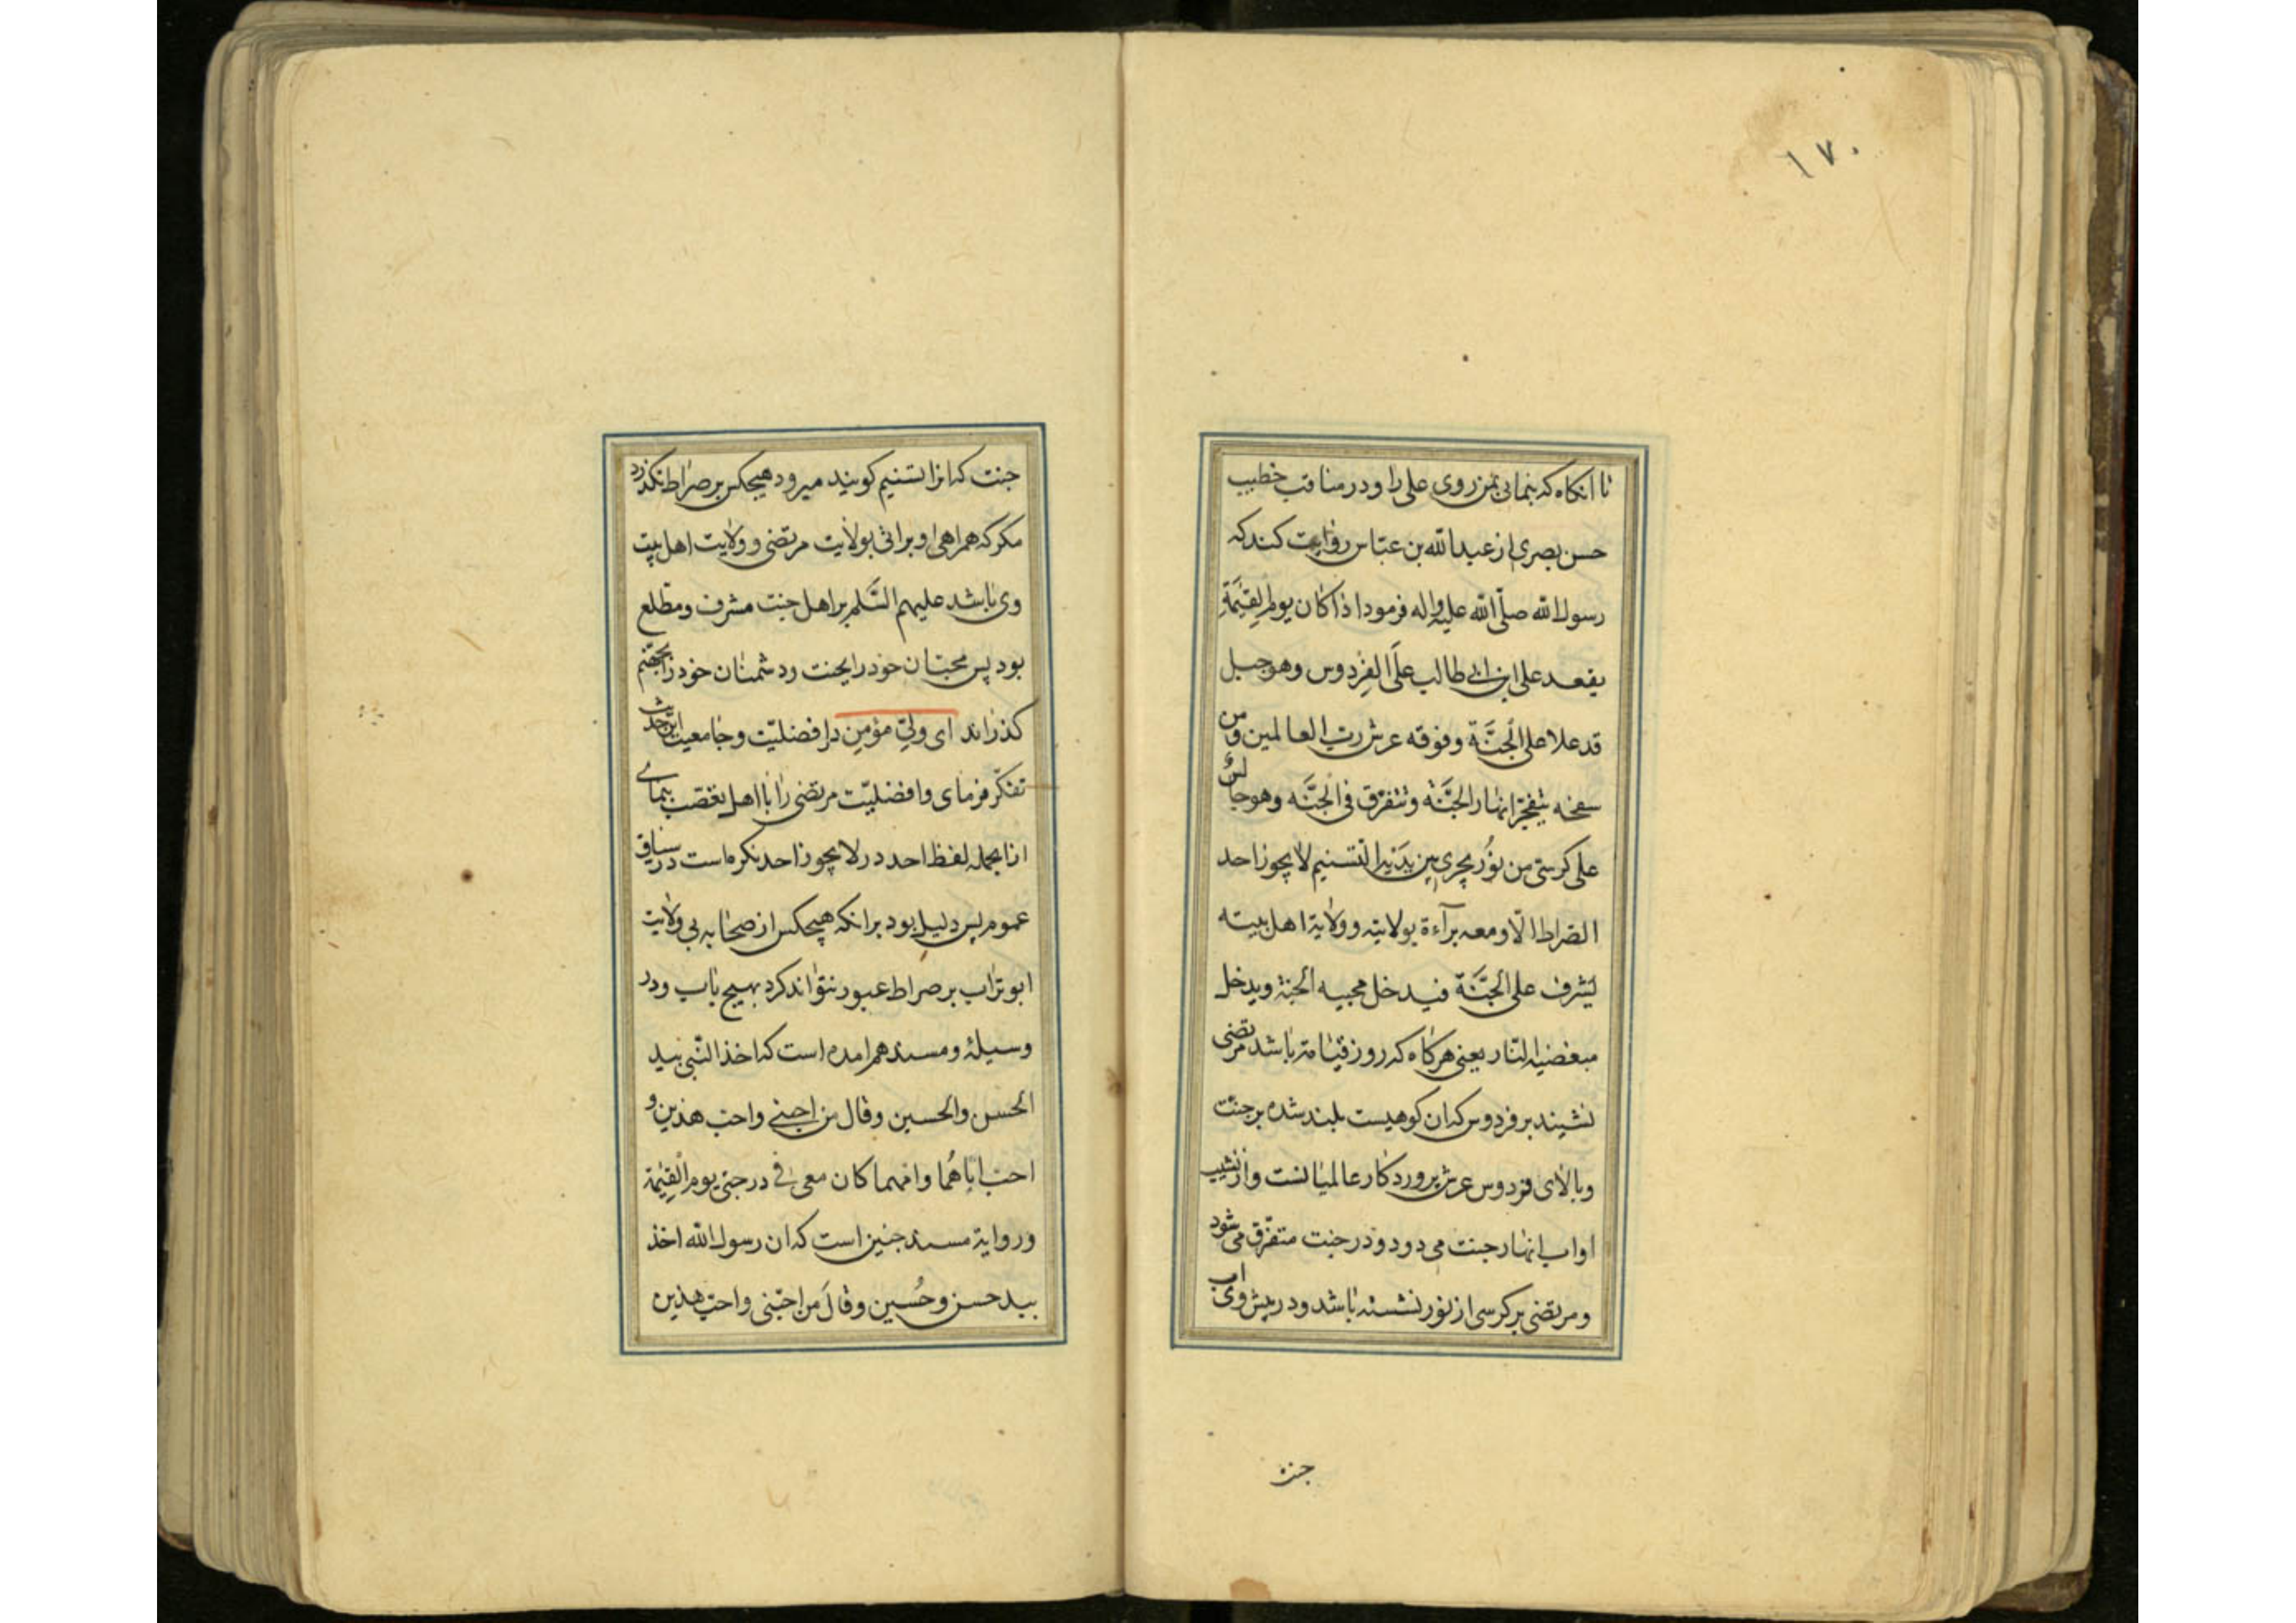 ١٧٠
تا انکاه که بنمایی بمن روی علی را و در مناقب خطیب
حسن بصری از عبدالله بن عباس روایت کند که
رسول الله صلّی الله علیه واله فرمود اذا کان یوم القیٰمَةِ
یقعد علی ابن ابی طالب علَی الفِردوس وهو جبل
قد علا علی الجنَّة وفوقه عرش ربّ العالمین ومن
سفحه یتفجّر انهار الجنَّة وتتفرّق فی الجنَّه وهو جالس
علی کرسیّ من نُور یجری بین یدَیه التسنیم لا یجوز احد
الصراط الّا ومعه برآءة بولایته وولایة اهل بیته
لیشرف علی الجنَّة فیدخل محبیه الجنة ویدخل
مبغضیه النّار یعنی هرکاه که روز قیامة باشد مرتضی
نشیند بر فردوس که ان کوهیست بلند شده بر جنّت
وبالای فردوس عرش پروردکار عالمیانست واز نشیب
او اب انهار جنت می دود ودر جنت متفرّق می شود
ومرتضی بر کرسی از نور نشسته باشد ودر پیش وی اب
جنت
جنت که انرا تسنیم کویند میرود هیچکس بر صراط نکذرد
مکر که همراهی او براتی بولایت مرتضی و ولایت اهل بیت
وی باشد علیهم السَّلم بر اهل جنت مشرف ومطلع
بود پس محبّان خود را بجنت و دشمنان خود را بجهنّم
کذراند ای ولیّ مؤمن در افضلیّت وجامعیت این حدیث
تفکّر فرمای وافضلیّت مرتضی را با اهل تعصّب بنمای
ازانجمله لفظ احد در لا یجوز احد نکره است در سیاق
عموم پس دلیل بود بر انکه هیچکس از صحابه بی ولایت
ابوتراب بر صراط عبور نتواند کرد بهیچ باب ودر
وسیلهٔ ومسند هم امده است که اخذ النّبی بید
الحسن والحسین وقال من احبنی واحب هذین و
احب اباهُما وامهما کان معی فی درجتی یوم القیٰمة
وروایة مسند چنین است که ان رسول الله اخذ
بید حسن وحُسین وقالَ من احبّنی واحبّ هذین